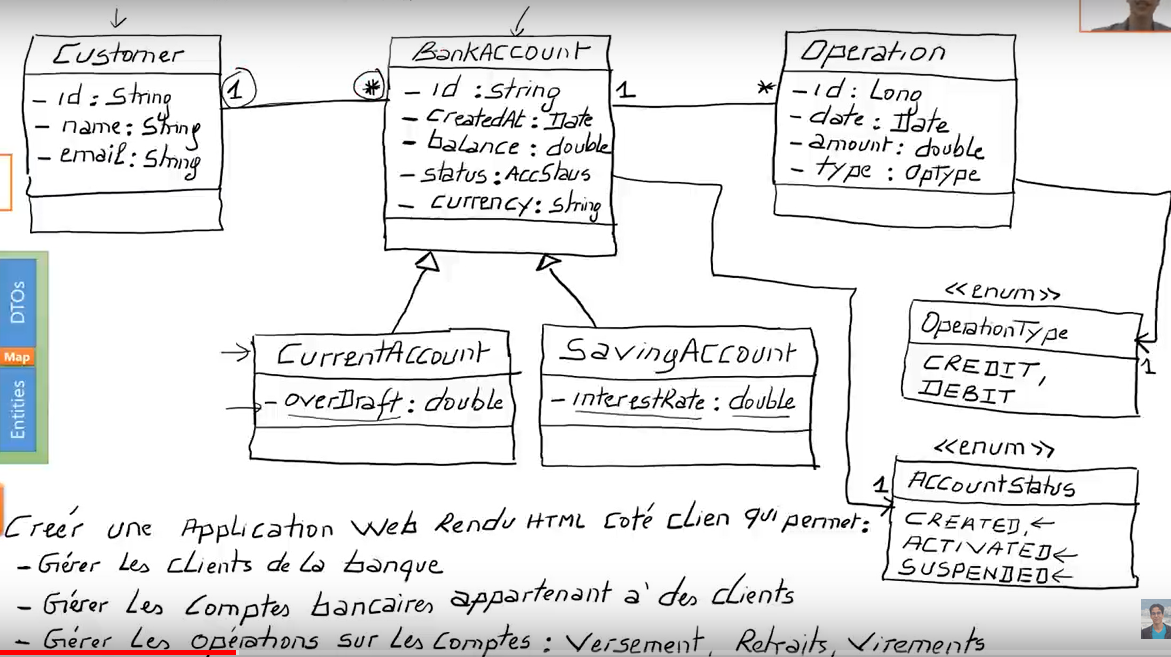 Customer
- id : String
- name : String
- email : String
1
*
BankAccount
- id : String
- createdAt : Date
- balance : double
- status : AccStaus
- currency : String
1
*
Operation
- id : Long
- date : Date
- amount : double
- type : OpType
<<enum>>
OperationType
CREDIT,
DEBIT
1
CurrentAccount
- overDraft : double
SavingAccount
- interestRate : double
<<enum>>
1
AccountStatus
CREATED,
ACTIVATED
SUSPENDED
DTOs
Map
Entities
Creér une Application Web Rendu HTML coté clien qui permet :
- Gérer Les clients de la banque
- Gérer Les Comptes bancaires appartenant à des clients
- Gérer Les opérations sur Les comptes : Versement, Retraits, Virements